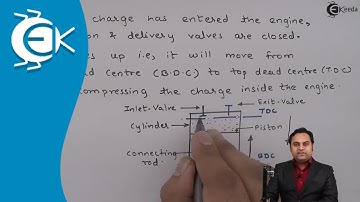 Ekeeda
charge has entered the engine,
on & delivery valves are closed.
es up i.e, it will move from
ad Centre (B.D.C) to top dead Centre (T.D.C)
ompressing the charge inside the engine.
Inlet-Valve
Exit-Valve
TDC
Cylinder
Piston
Connecting
rod.
BDC